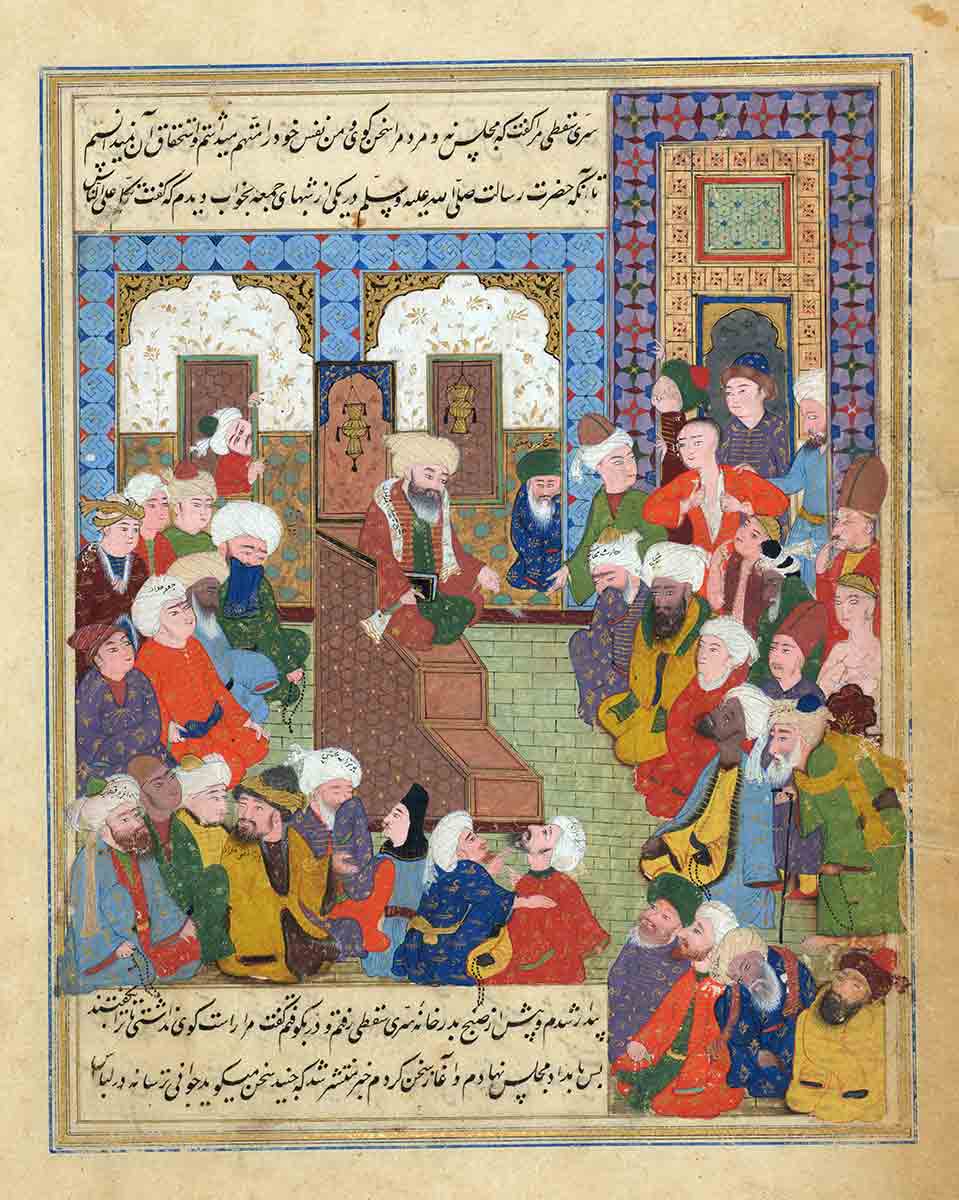 سری سقطی مر گفت که مجلس نه و مردم را سخن کوی و من نفس خود را متهم میداشتم و استحقاق آن نمیدانستم
تا آنکه حضرت رسالت صلی الله علیه وسلم در یکی از شبهای جمعه بخواب دیدم که گفت تکلم علی الناس
بیدار شدم و پیش از صبح بدر خانهٔ سری سقطی رفتم و در بکوفتم گفت مرا راست کوی نداشتی تا ترا نگفتند
پس بامداد مجلس نهادم و آغاز سخن کردم خبر منتشر شد که جنید سخن میکوید جوانی ترسا نه در لباس